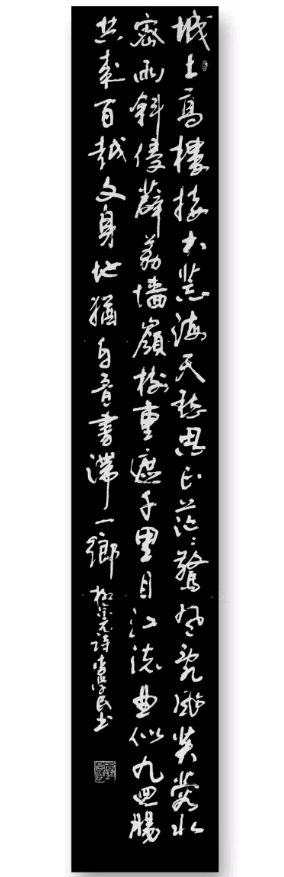 城上高樓接大荒海天愁思正茫〻驚風亂颭芙蓉水
密雨斜侵薜荔墻嶺樹重遮千里目江流曲似九回腸
共來百越文身地猶自音書滯一鄉 柳宗元詩 書